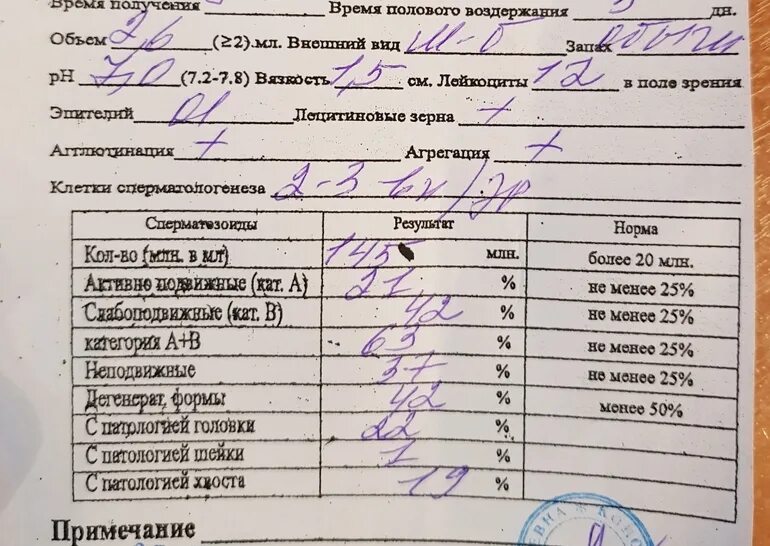 Время получения Время полового воздержания 3 дн.
Объем 2,6 (≥2).мл. Внешний вид м-б Запах обычн
pH 7,0 (7.2-7.8) Вязкость 1,5 см. Лейкоциты 12 в поле зрения
Эпителий 01 Лецитиновые зерна +
Агглютинация + Агрегация +
Клетки сперматологенеза 2-3
Сперматезоиды Результат Норма
Кол-во (млн. в мл) 145 млн. более 20 млн.
Активно подвижные (кат. А) 21 % не менее 25%
Слабоподвижные (кат. В) 42 % не менее 25%
категория А+В 63 % не менее 25%
Неподвижные 37 % не менее 25%
Дегенерат, формы 42 % менее 50%
С патрлогией головки 22 %
С патологией шейки 1 %
С патологией хвоста 19 %
Примечание